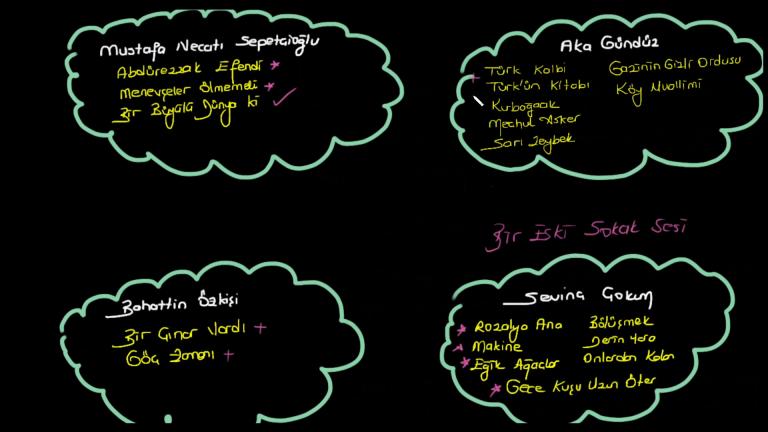 Mustafa Necati Sepetçioğlu
Abdürezzak Efendi
Menevşeler Ölmemeli
Bir Büyülü Dünya ki
Aka Gündüz
Türk Kalbi
Türk'ün Kitabı
Kurbağacık
Meçhul Asker
Sarı Zeybek
Gazinin Gizli Ordusu
Köy Muallimi
Bahattin Özkişi
Bir Çınar Vardı
Göç Zamanı
Bir Eski Sokak Sesi
Sevinç Çokum
Rozalya Ana
Makine
Eğik Ağaçlar
Bölüşmek
Derin Yara
Onlardan Kalan
Gece Kuşu Uzun Öter